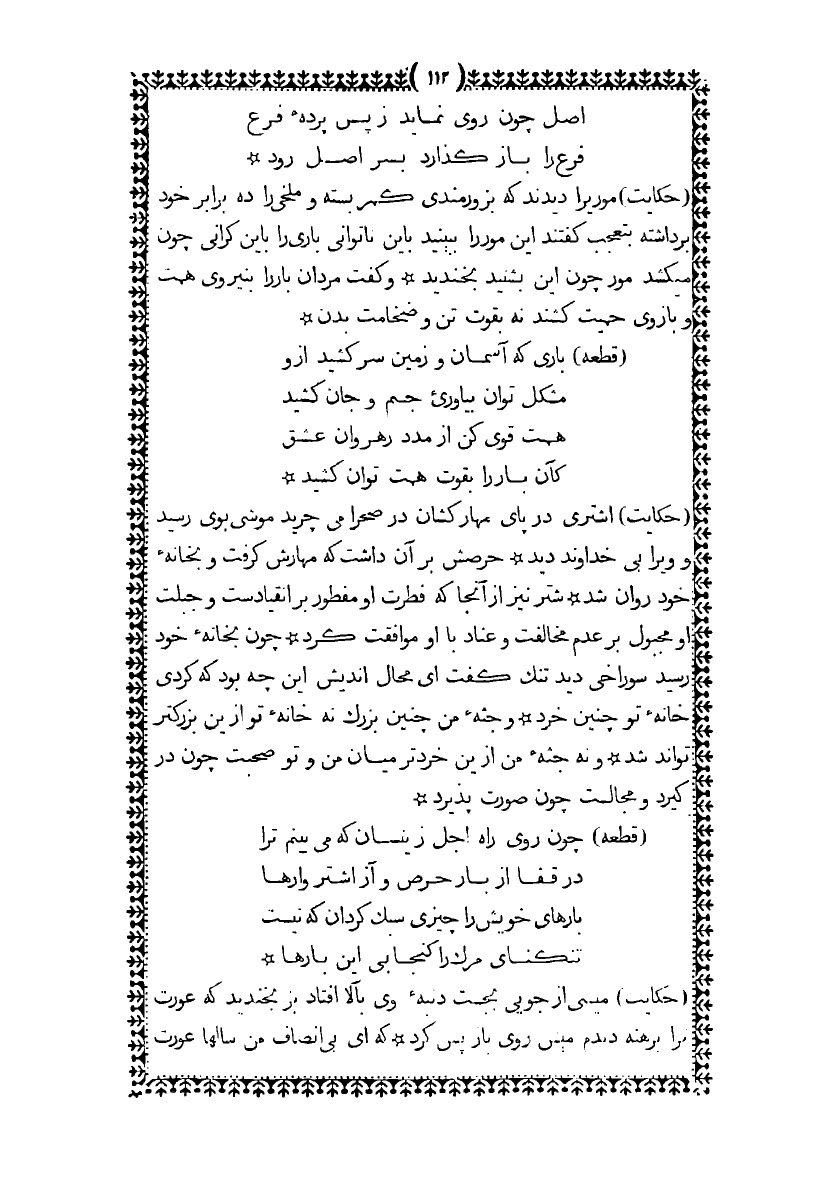 (۱۱۲)
اصل چون روی نماید ز پس پردهٔ فرع
فرع را باز گذارد بسر اصل رود ✡
(حکایت) موریرا دیدند که بزورمندی کمر بسته و ملخی را ده برابر خود
برداشته بتعجب کفتند این موررا ببینید باین ناتوانی باری را باین کرانی چون
میکشد مور چون این بشنید بخندید ✡ وکفت مردان باررا بنیروی همت
و بازوی حمیت کشند نه بقوت تن و ضخامت بدن ✡
(قطعه) باری که آسمان و زمین سرکشید ازو
مشکل توان بیاورئ جسم و جان کشید
همت قوی کن از مدد رهروان عشق
کآن بار را بقوت همت توان کشید ✡
(حکایت) اشتری در پای مهارکشان در صحرا می چرید موشی بوی رسید
و ویرا بی خداوند دید ✡ حرصش بر آن داشت که مهارش کرفت و بخانهٔ
خود روان شد ✡ شتر نیز از آنجا که فطرت او مفطور بر انقیادست و جبلت
او مجبول بر عدم مخالفت و عناد با او موافقت کرد ✡ چون بخانهٔ خود
رسید سوراخی دید تنك کفت ای محال اندیش این چه بود که کردی
خانهٔ تو چنین خرد ✡ و جثهٔ من چنین بزرك نه خانهٔ تو ازین بزرکتر
تواند شد ✡ و نه جثهٔ من ازین خردتر میان من و تو صحبت چون در
کیرد و مجالست چون صورت پذیرد ✡
(قطعه) چون روی راه اجل زینسان که می بینم ترا
در قفا از بار حرص و آز اشتر وارها
بارهای خویش را چیزی سبك کردان که نیست
تنکنای مرك را کنجایی این بارها ✡
(حکایت) میشی از جویی بجست دنبهٔ وی بالا افتاد بز بخندید که عورت
ترا برهنه دیدم میش روی باز پس کرد ✡ که ای بی انصاف من سالها عورت